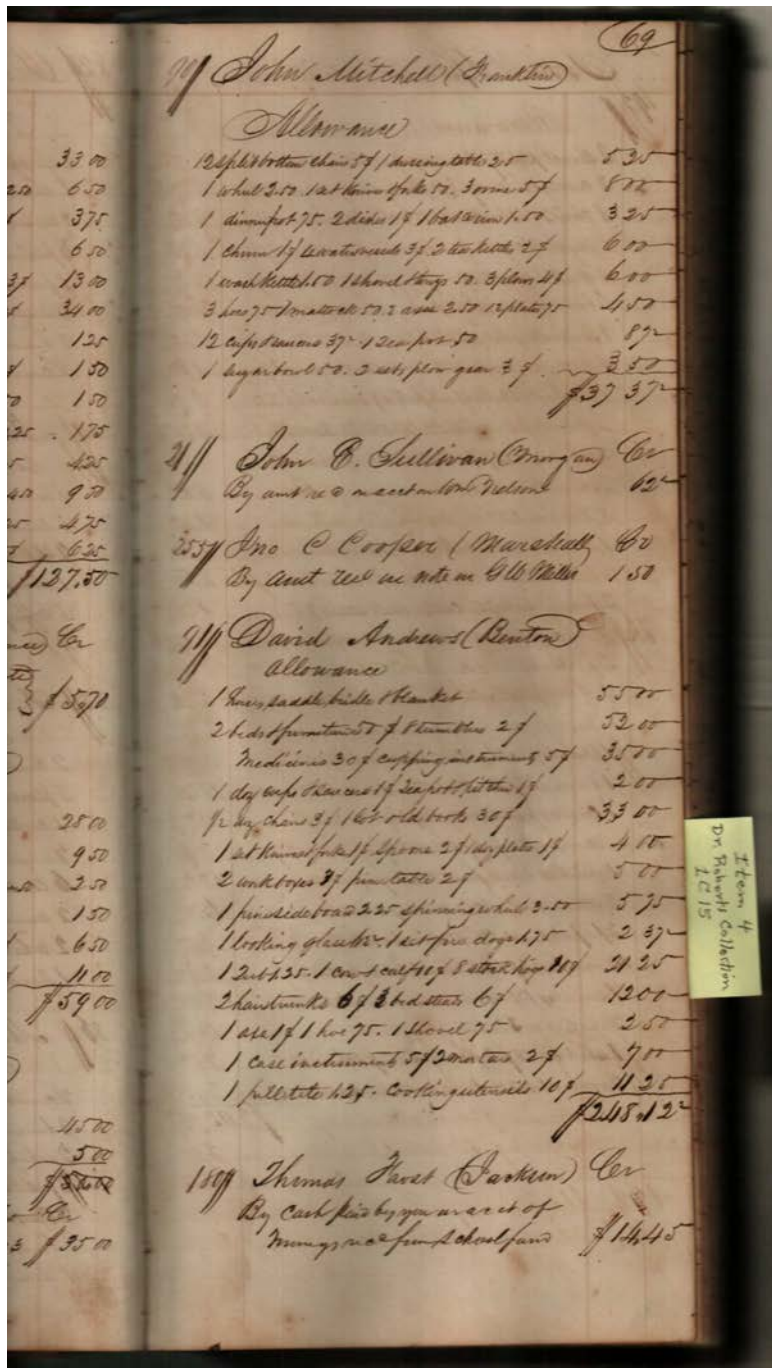 3300
650
375
650
1300
3400
125
150
150
175
425
950
475
625
$127.50
Cr
$5,70
2500
950
250
150
650
1100
$5900
4500
500
Cr
$3500
69
John Mitchell (Franklin)
Allowance
12 split bottom chairs 5$ 1 dressing table 25 525
1 wheel 2.50. 1 set knives & forks 50. 3 ovens 5$ 800
1 dinner pot 75. 2 dishes 1$ 1 1.50 325
1 churn 1$ 4 water vessels 3$ 2 tea kettles 2$ 600
1 wash kettle 1.50 1 shovel & tongs 50. 3 plows 4$ 600
3 hoes 75 1 mattock 50. 2 axes 2.50 12 plates 75 450
12 cups & saucers 37 1 tea pot 50 87
1 sugar bowl 50. 2 sets plow gear 3$ 350
$37 37
21 John E. Sullivan (Morgan) Cr
By amt rec on acct on Wm Nelson 62
255 Jno C Cooper (Marshall) Cr
By amt rec on note on G W Miller 150
91 David Andrews (Benton)
Allowance
1 horse, saddle, bridle & blanket 5500
2 beds & furniture 50$ 8 tumblers 2$ 5200
Medicines 30$ cupping instruments 5$ 3500
1 doz cups & saucers 1$ tea pot & pitcher 1$ 200
1/2 doz chairs 3$ 1 lot old books 30$ 3300
1 set knives & forks 1$ spoons 2$ 1 doz plates 1$ 400
2 work boxes 3$ pine table 2$ 500
1 pine side board 225 spinning wheel 3.50 575
1 looking glass 1 set fire dogs 1.75 237
1 1.25. 1 cow & calf 10$ 8 stock hogs 10$ 2125
2 hair trunks 6$ 3 bed steads 6$ 1200
1 axe 1$ 1 hoe 75. 1 shovel 75 250
1 case instruments 5$ 2 mortars 2$ 700
1 1.25. Cooking utensils 10$ 1125
$248,12
180 Thomas (Jackson) Cr
By Cash paid by you on acct of
Moneys rec from School fund $14,45
Item 4
Dr. Roberts Collection
LC 15